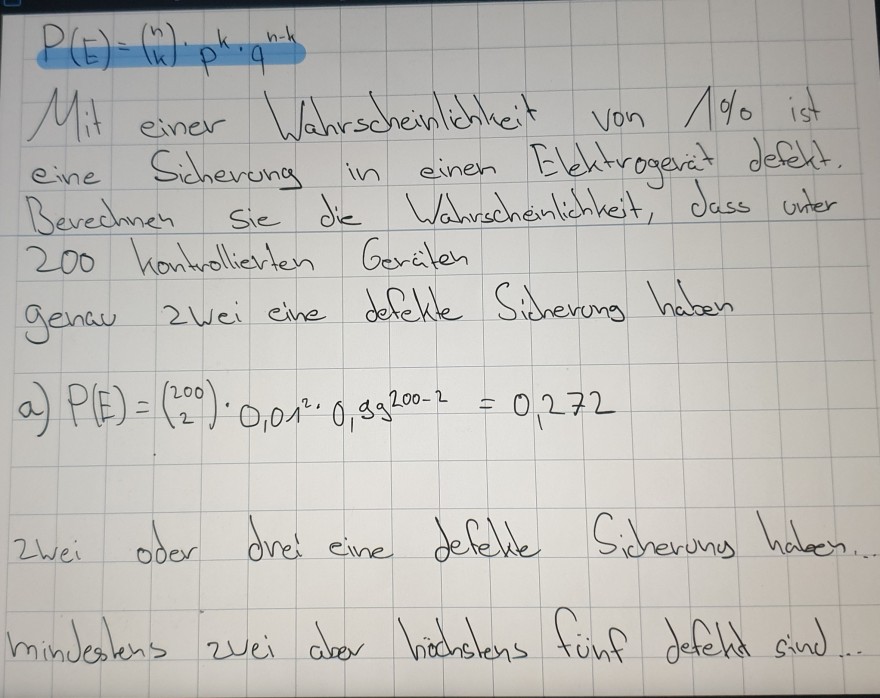 P(E) = (n k) · p^k · q^(n-k)
Mit einer Wahrscheinlichkeit von 1% ist
eine Sicherung in einen Elektrogerät defekt.
Berechnen Sie die Wahrscheinlichkeit, dass unter
200 kontrollierten Geräten
genau zwei eine defekte Sicherung haben
a) P(E) = (200 2) · 0,01² · 0,99^(200-2) = 0,272
zwei oder drei eine defekte Sicherung haben...
mindestens zwei aber höchstens fünf defekt sind...